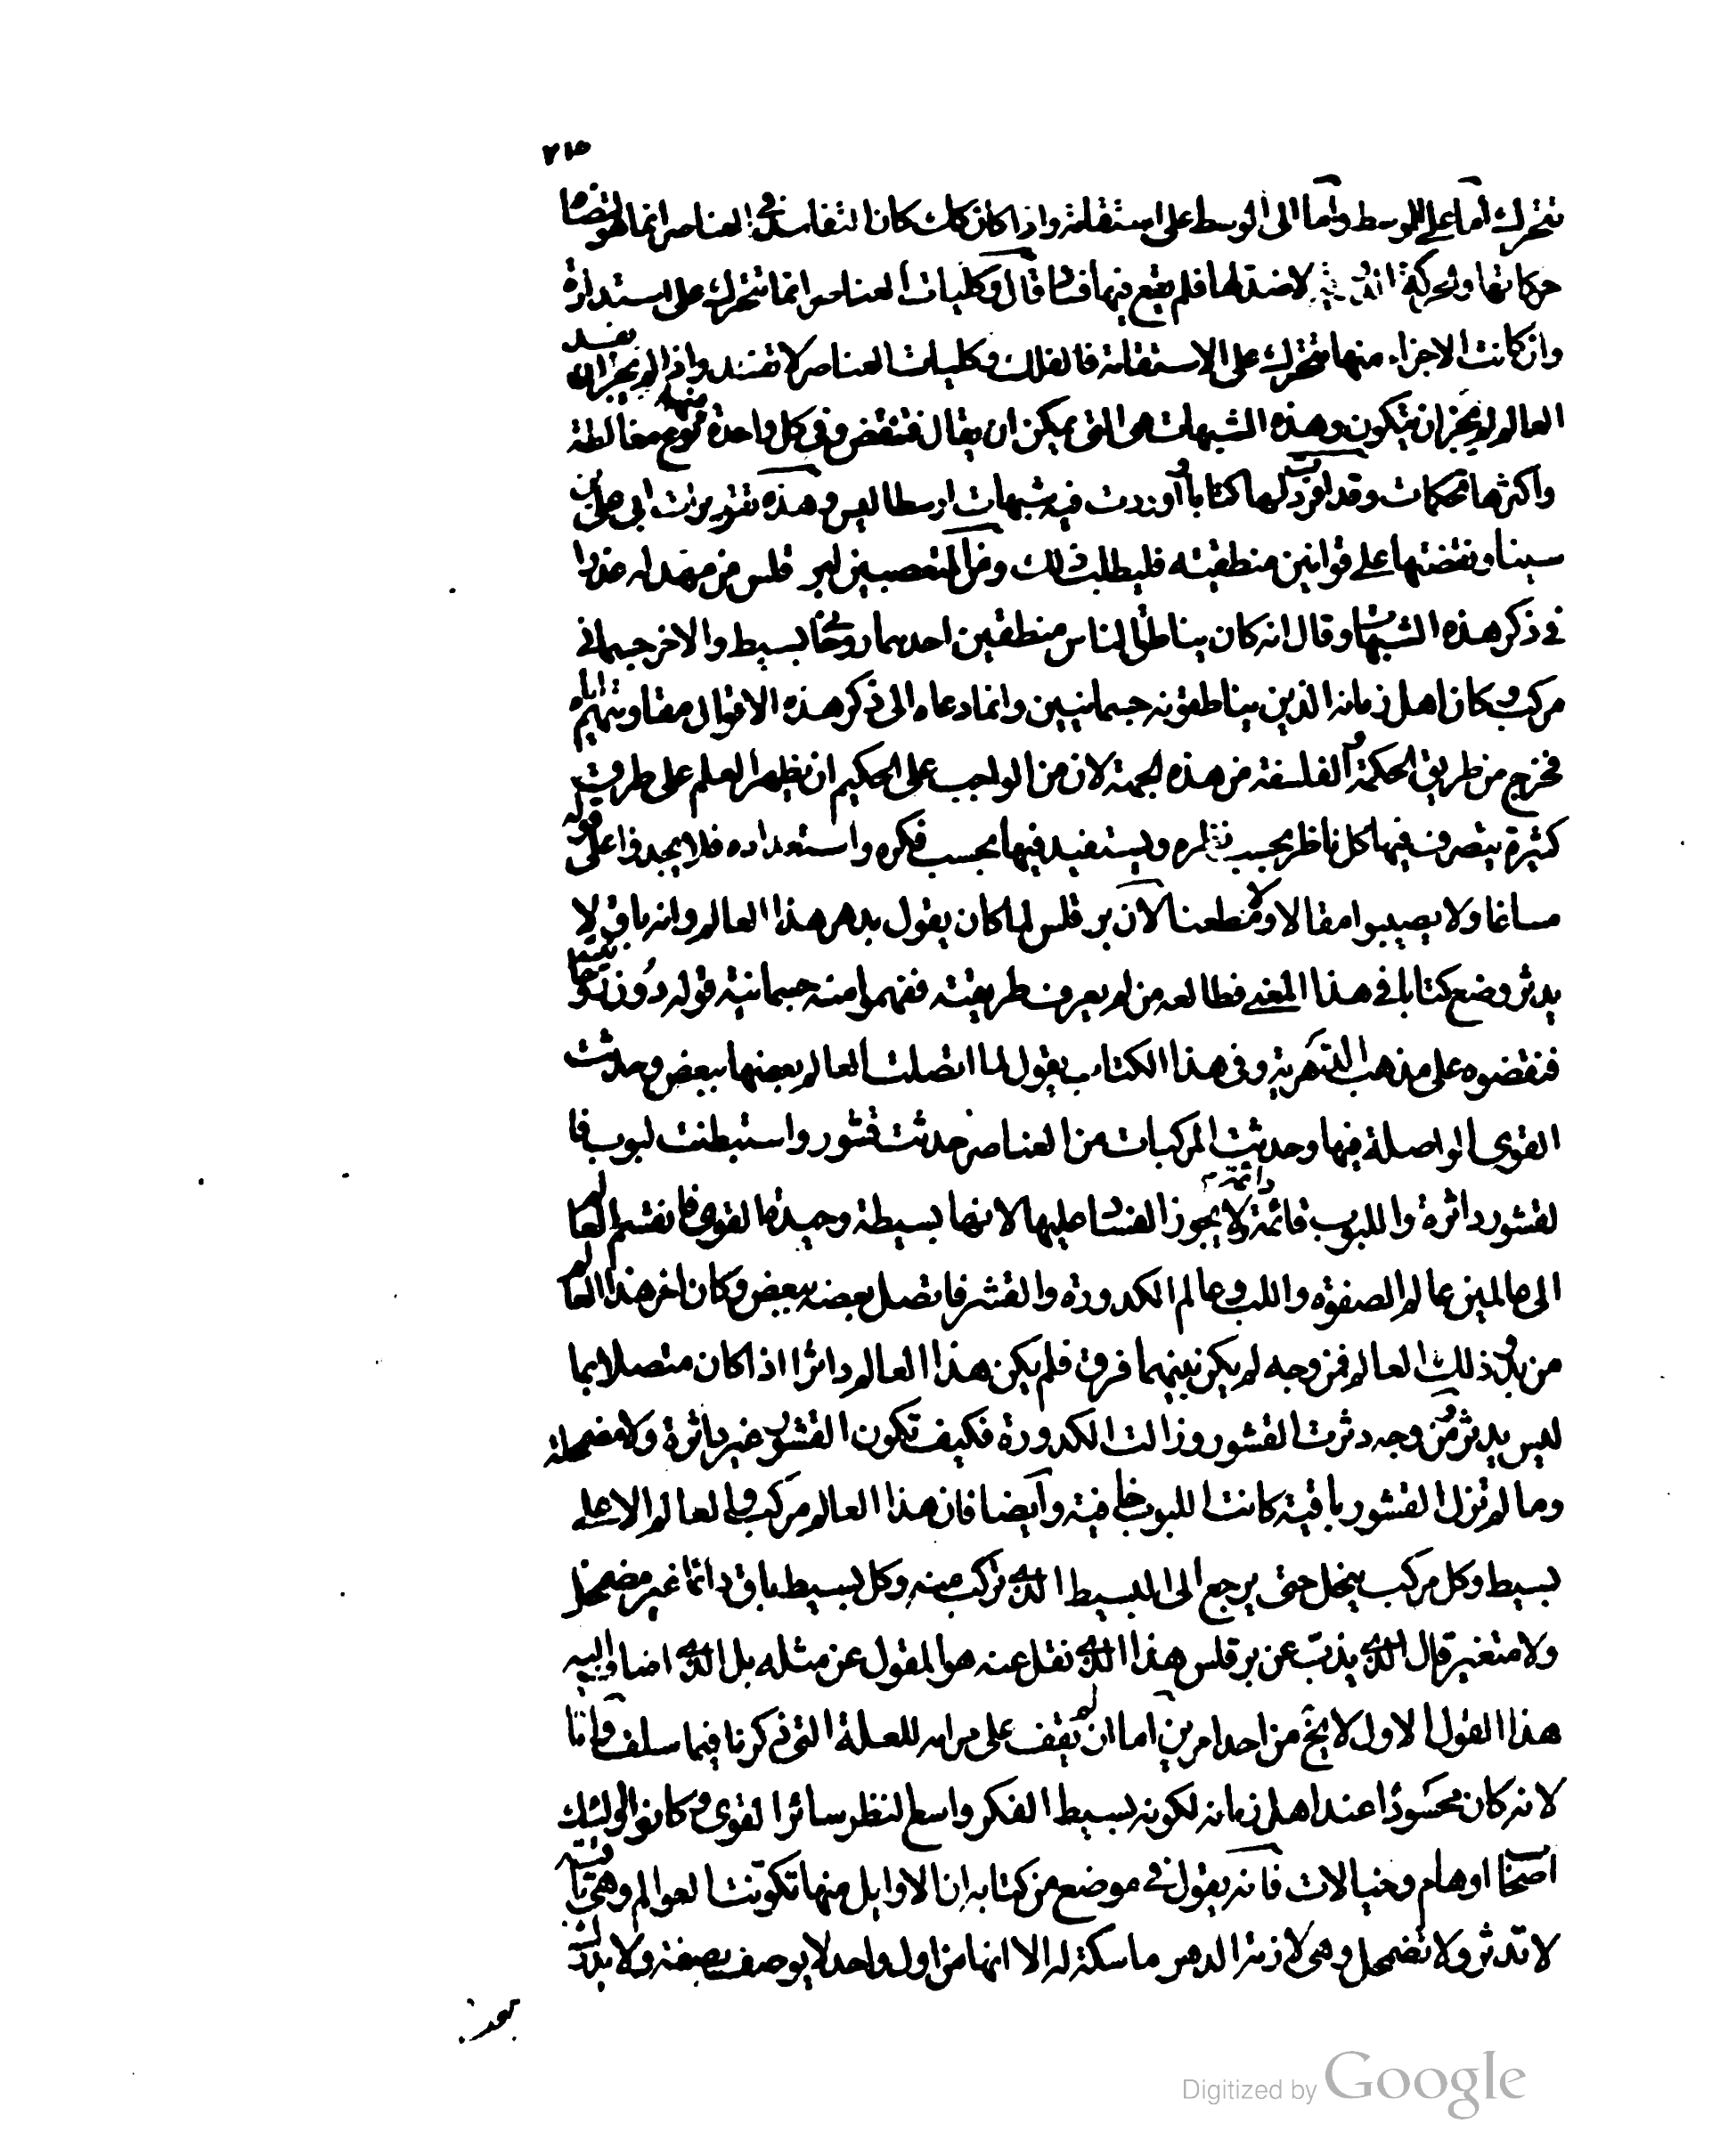 ٢١٥
تتحرك اما على الوسط واما الى الوسط على استقامة واذا كان كك كان التفاسد فى العناصر انما هو لتضاد
حركاتها والحركة لا ضد لها فلم يقع فيها فساد قال وكليات العناصر انما تتحرك على استدارة
وان كانت الاجزاء منها تتحرك على الاستقامة فالفلك وكليات العناصر لا تفسد واذا لم يجز ان يفسد
العالم لم يجز ان يتكون وهذه الشبهات هى التى يمكن ان يقال فتنقض وفى كل واحدة منها نوع مغالطة
واكثرها تحكمات وقد افردت لها كتابا واوردت فيه شبهات ارسطاليس وهذه تقريرات ابى على بن
سينا ونقضتها على قوانين منطقية فليطلب ذلك ومن المتعصبين لبرقلس من مهد له عذرا
فى ذكر هذه الشبهات وقال انه كان يناطق الناس منطقين احدهما روحانى بسيط والاخر جسمانى
مركب وكان اهل زمانه الذين يناطقونه جسمانيين وانما دعاه الى ذكر هذه الاقوال مقاومتهم اياه
فخرج من طريق الحكمة والفلسفة من هذه الجهة لان من الواجب على الحكيم ان يظهر العلم على طرق
كثيرة يتصرف فيها كل ناظر بحسب نظره ويستفيد فيها بحسب فكره واستعداده فلا يجدوا على قوله
مساغا ولا يصيبوا مقالا ولا مطعنا لان برقلس لما كان يقول بدهر هذا العالم وانه باق لا
يدثر وضع كتابا فى هذا المعنى فطالعه من لم يعرف طريقته ففهموا منه جسمانية قوله دون روحانيته
فنقضوه على مذهب الدهرية وفى هذا الكتاب يقول لما اتصلت العالم بعضها ببعض وحدثت
القوى الواصلة فيها وحدثت المركبات من العناصر حدثت قشور واستبطنت لبوب فا
لقشور داثرة واللبوب قائمة دائمة لا يجوز الفساد عليها لانها بسيطة وحيدة القوى فانقسم العالم
الى عالمين عالم الصفوة واللب وعالم الكدورة والقشر فاتصل بعضه ببعض وكان اخر هذا العالم
من بدو ذلك العالم فمن وجه لم يكن بينهما فرق فلم يكن هذا العالم داثرا اذا كان متصلا بما
ليس يدثر ومن وجه دثرت القشور وزالت الكدورة فكيف تكون القشور غير داثرة ولا مضمحلة
وما لم تزل القشور باقية كانت اللبوب خافية وايضا فان هذا العالم مركب والعالم الاعلى
بسيط وكل مركب ينحل حتى يرجع الى البسيط الذى تركب منه وكل بسيط باق دائما غير مضمحل
ولا متغير قال الذى يذب عن برقلس هذا الذى نقل عنه هو المقول عن مثله بل الذى اضاف اليه
هذا القول الاول لا يخ من احد امرين اما ان لم يقف على مرامه للعلة التى ذكرنا فيما سلف واما
لانه كان محسودا عند اهل زمانه لكونه بسيط الفكر واسع النظر سائر القوى وكانوا اولئك
اصحاب اوهام وخيالات فانه يقول فى موضع من كتابه ان الاوايل منها تكونت العوالم وهى باقية
لا تدثر ولا تضمحل وهى لازمة الدهر ماسكة له الا انها من اول واحد لا يوصف بصفة ولا يدرك
Digitized by Google